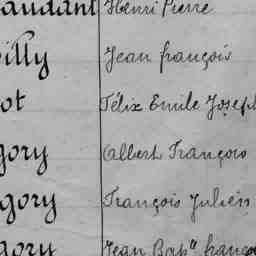 audant Henri Pierre
illy Jean françois
ot Félix Emile Joseph
gory Albert François
gory François Julien
gory Jean Bapte franço